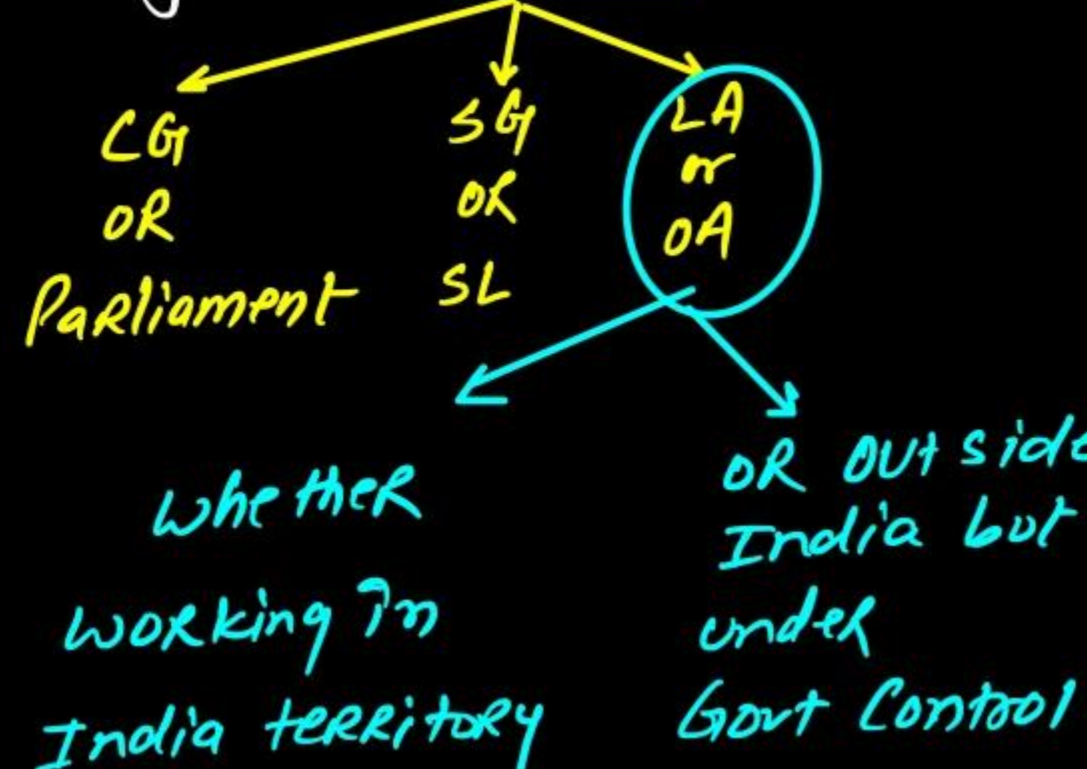 CG
OR
Parliament
SG
OR
SL
LA
or
OA
whether
working in
India territory
OR Outside
India but
under
Govt Control